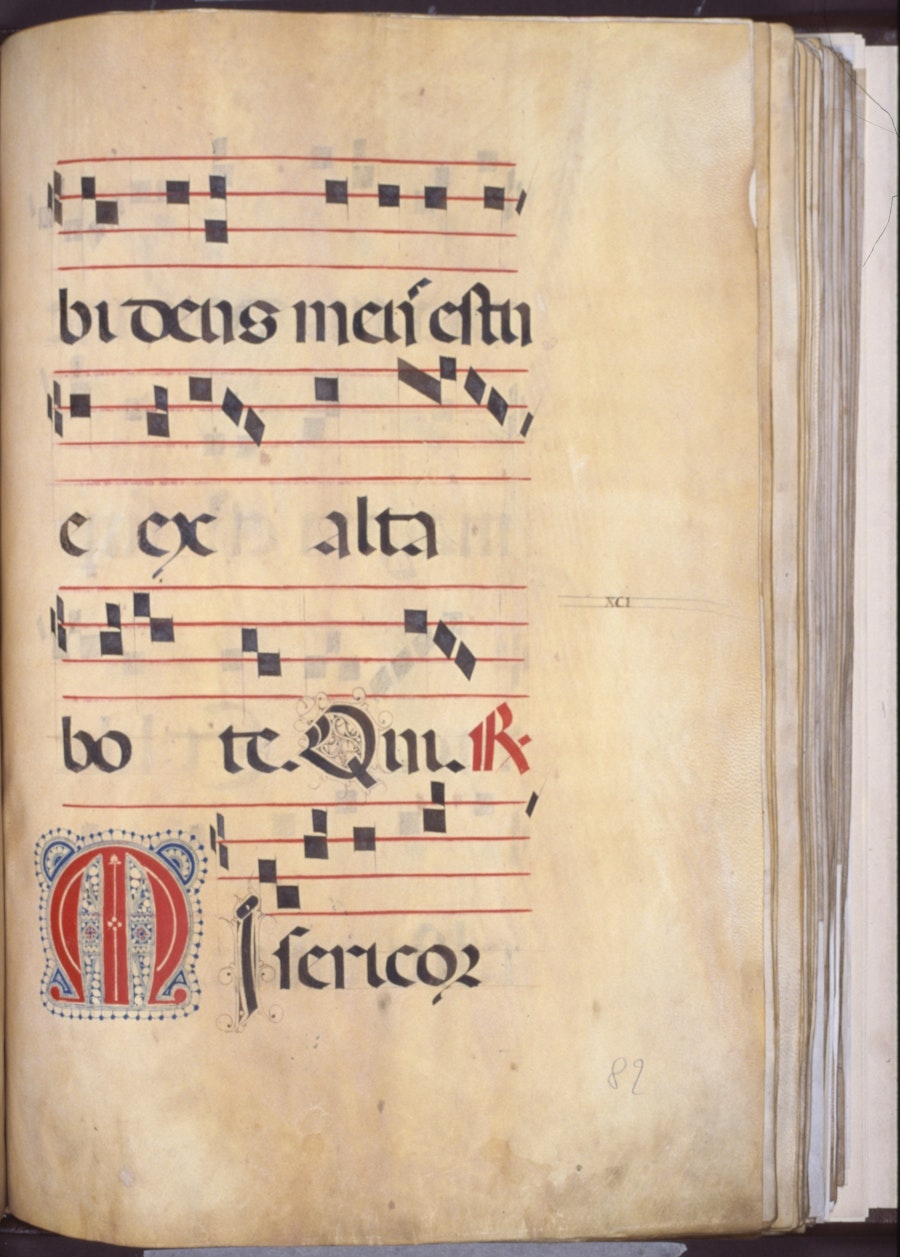 bi deus meus estu
e ex alta
XCI
bo te. Qm. R.
MIsericor
82